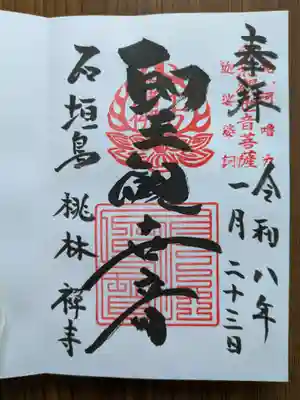 奉拝
令和八年
一月二十三日
聖観世音
石垣島
桃林禅寺
音菩薩
迦娑婆訶